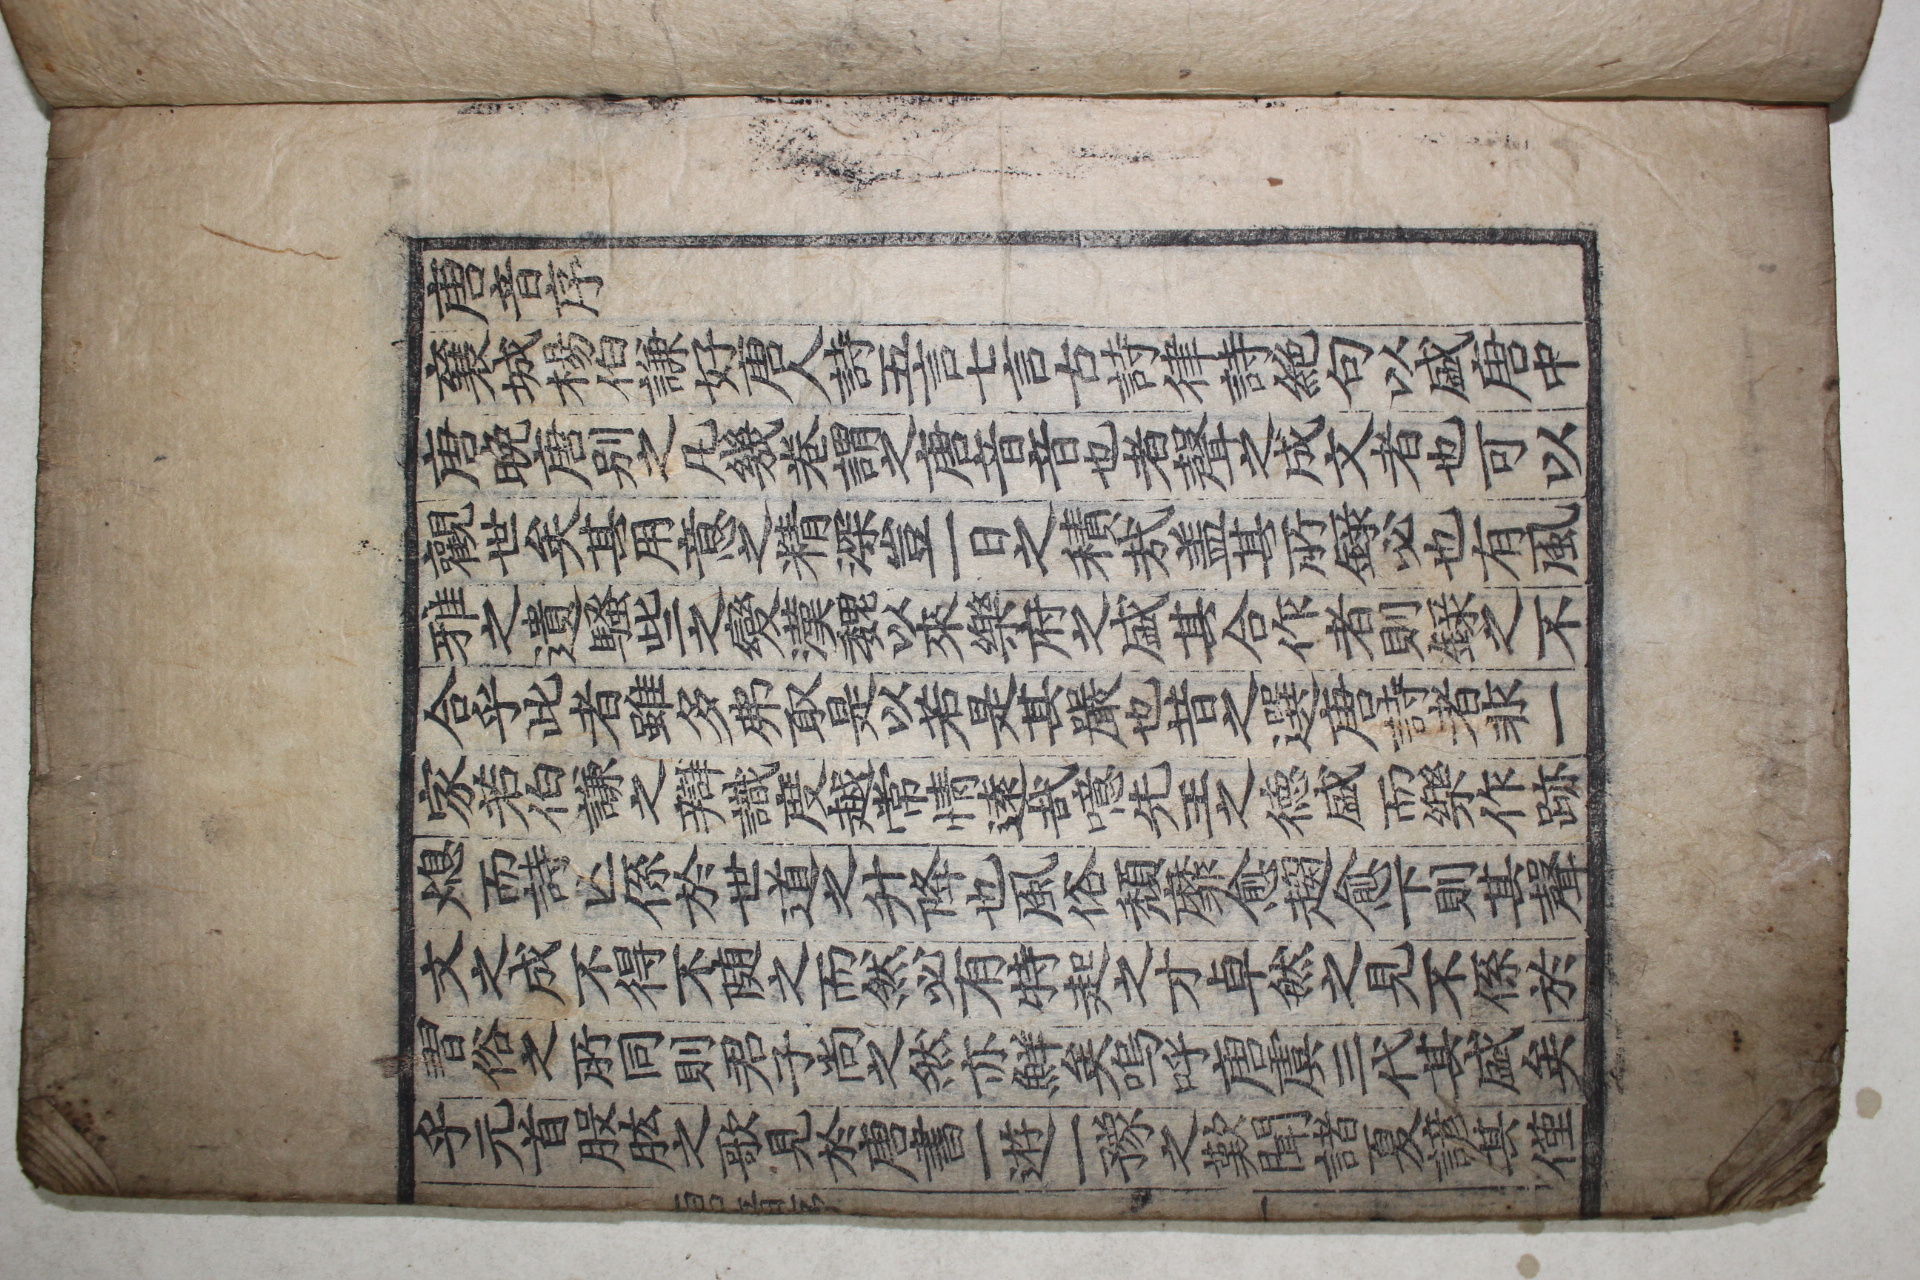 唐音序
襄城楊伯謙好唐人詩五言七言古詩律詩絶句以盛唐中
唐晚唐別之凡幾卷謂之唐音音也者聲之成文者也可以
觀世矣其用意之精深豈一日之積哉盖其所錄必也有風
雅之遺騷些之變漢魏以來樂府之盛其合作者則錄之不
合乎此者雖多弗取是以若是其嚴也昔之選唐詩者非一
家若伯謙之辯識度越常情遠哉噫先王之德盛而樂作跡
熄而詩亾係於世道之升降也風俗頹靡愈趨愈下則其聲
文之成不得不随之而然必有特起之才卓然之見不係於
習俗之所同則君子尚之然亦鮮矣嗚呼唐虞三代其盛矣
乎元首股肱之歌見於唐書一遊一豫之歎聞諸夏諺其僅
唐音序
一